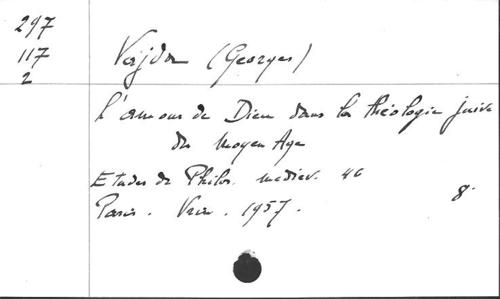 297
117
2
Vajda (Georges)
L'amour de Dieu dans la théologie juive
du Moyen Age
Etudes de Philos. médiév. 46
8.
Paris. Vrin. 1957.